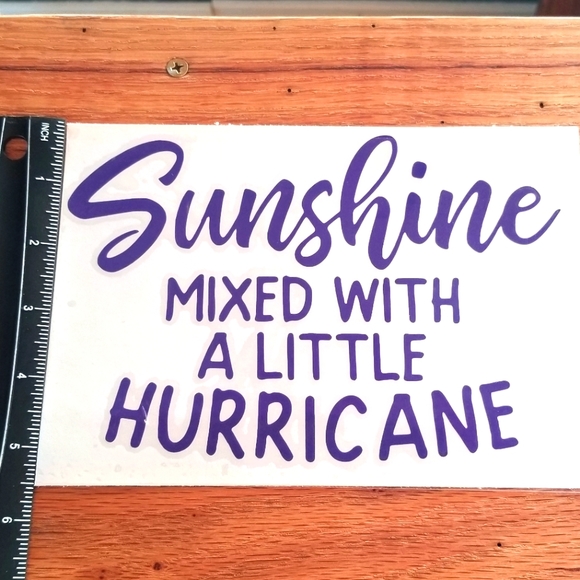 Sunshine
MIXED WITH
A LITTLE
HURRICANE
INCH
1
2
3
4
5
6